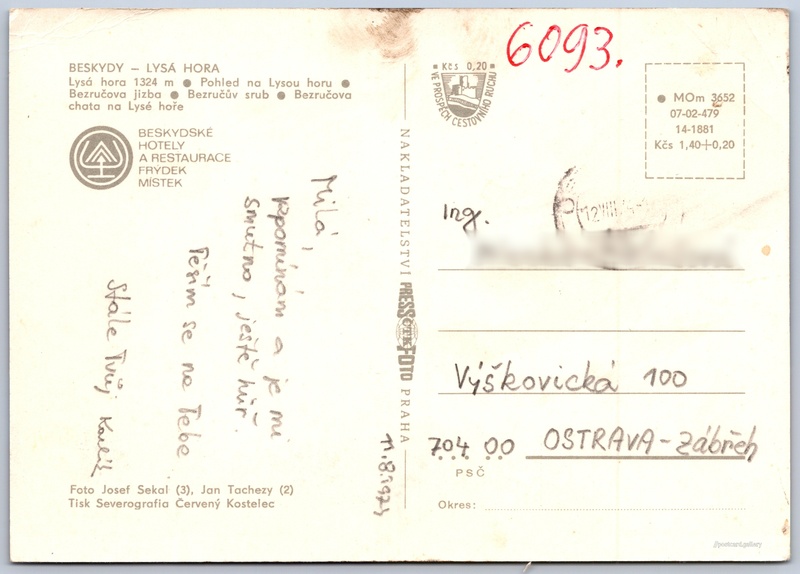 BESKYDY – LYSÁ HORA
Lysá hora 1324 m ● Pohled na Lysou horu ●
Bezručova jizba ● Bezručův srub ● Bezručova
chata na Lysé hoře
BESKYDSKÉ
HOTELY
A RESTAURACE
FRÝDEK
MÍSTEK
Milá,
vzpomínám a je mi
smutno, ještě hůř.
Těším se na Tebe
Stále Tvůj Karlík
Foto Josef Sekal (3), Jan Tachezy (2)
Tisk Severografia Červený Kostelec
NAKLADATELSTVÍ PRESSFOTO PRAHA
6093.
Kčs 0,20
VE PROSPĚCH CESTOVNÍHO RUCHU
● MOm 3652
07-02-479
14-1881
Kčs 1,40+0,20
Ing.
Výškovická 100
704 00 OSTRAVA-Zábřeh
PSČ
Okres:
//postcard.gallery